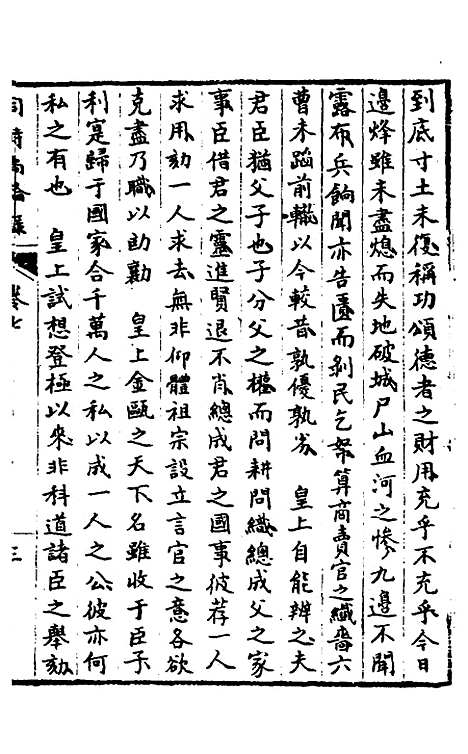 到底寸土未復稱功頌德者之財用充乎不充乎今日
邊烽雖未盡熄而失地破城尸山血河之慘九邊不聞
露布兵餉聞亦告匱而剥民乞帑算商賣官之纖嗇六
曹未蹈前轍以今較昔孰優孰劣 皇上自能辨之夫
君臣猶父子也子分父之權而問耕問織總成父之家
事臣借君之靈進賢退不肖總成君之國事彼荐一人
求用劾一人求去無非仰體祖宗設立言官之意各欲
克盡乃職以助勷 皇上金甌之天下名雖收于臣子
利寔歸于國家合千萬人之私以成一人之公彼亦何
私之有也 皇上試想登極以來非科道諸臣之舉劾
卷七
三